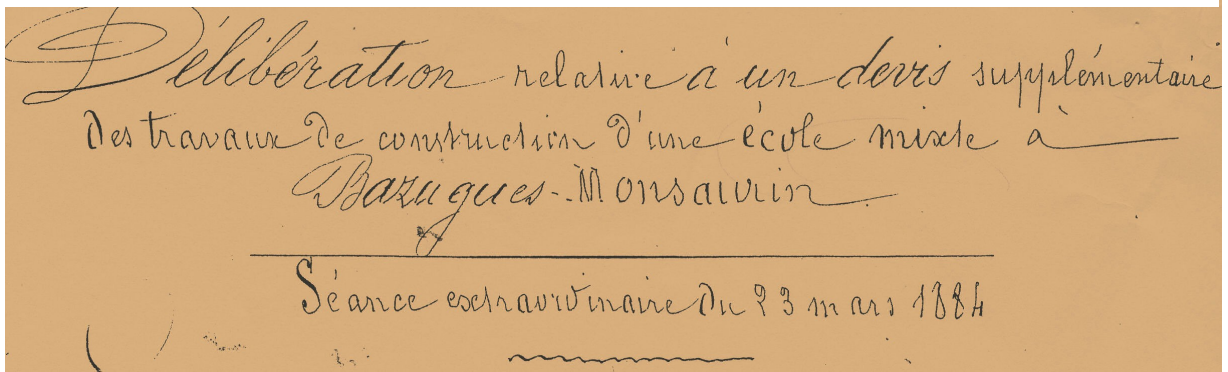 Délibération relative à un devis supplémentaire
des travaux de construction d'une école mixte à
Bazugues-Monsaurin
Séance extraordinaire du 23 mars 1884